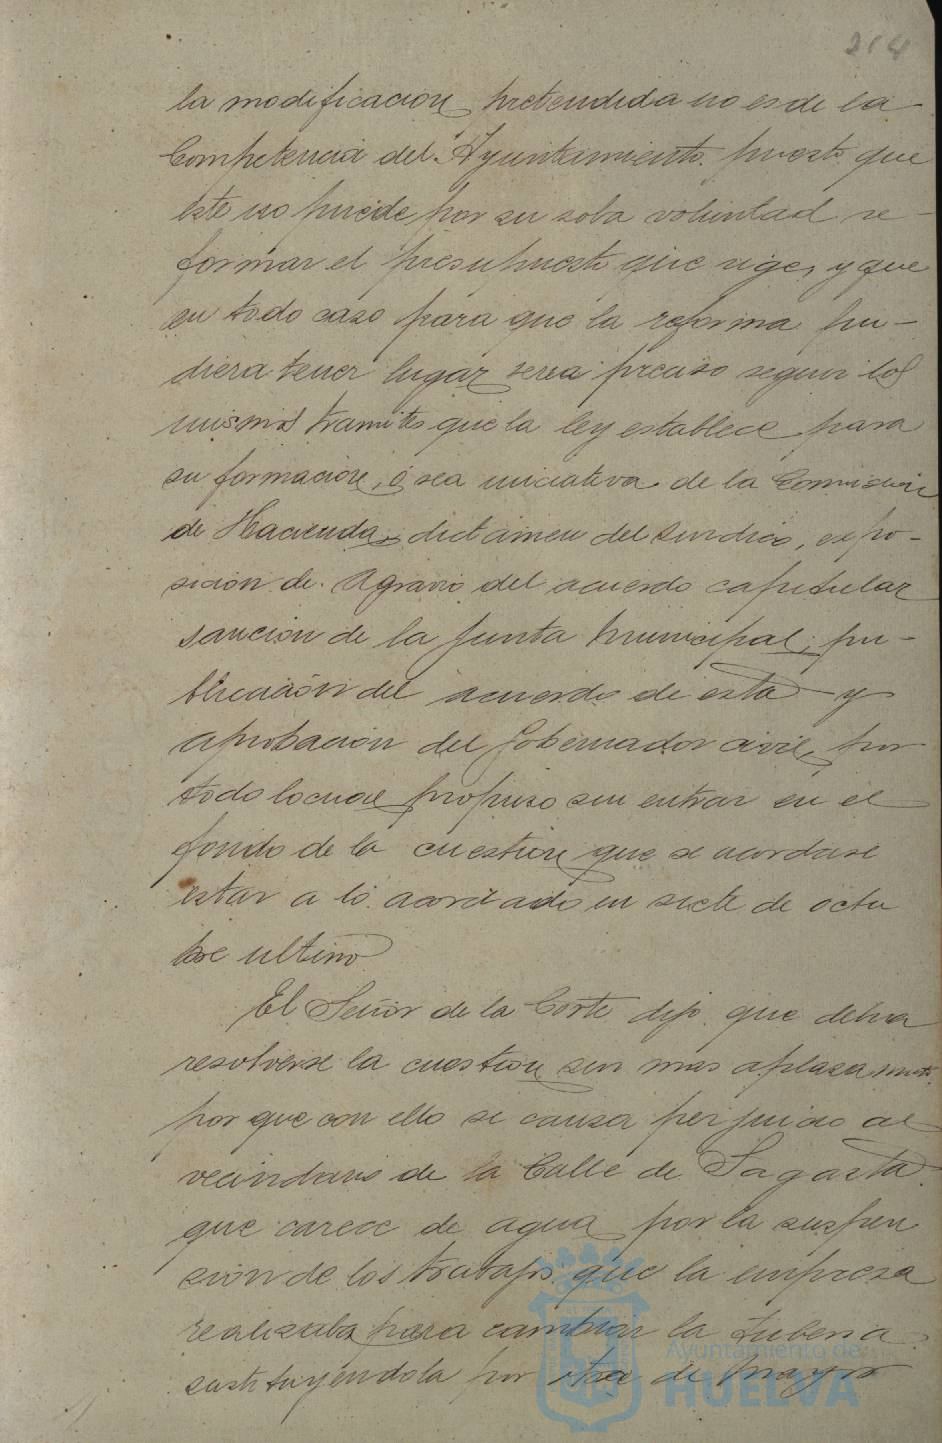 214
la modificacion pretendida no es de la
Competencia del Ayuntamiento. puesto que
este no puede por su sola voluntad re-
formar el presupuesto que rige, y que
en todo caso para que la reforma pu-
diera tener lugar seria preciso seguir los
mismos tramites que la ley establece para
su formacion, ó sea iniciativa de la Comision
de Hacienda, dictamen del Sindico, expo-
sicion de Agravio del acuerdo capitular
sancion de la Junta Municipal, pu-
blicación del acuerdo de esta y
aprobacion del Gobernador civil, por
todo lo cual propuso sin entrar en el
fondo de la cuestion que se acordase
estar a lo acordado en siete de octu
bre ultimo
El Señor de la Corte dijo que debia
resolverse la cuestion sin mas aplazamto.
por que con ello se causa perjuicio al
vecindario de la Calle de Sagasta
que carece de agua por la suspen
sion de los trabajos que la empresa
realizaba para cambiar la tuberia
sustituyéndola por otra de mayor
Ayuntamiento de
HUELVA